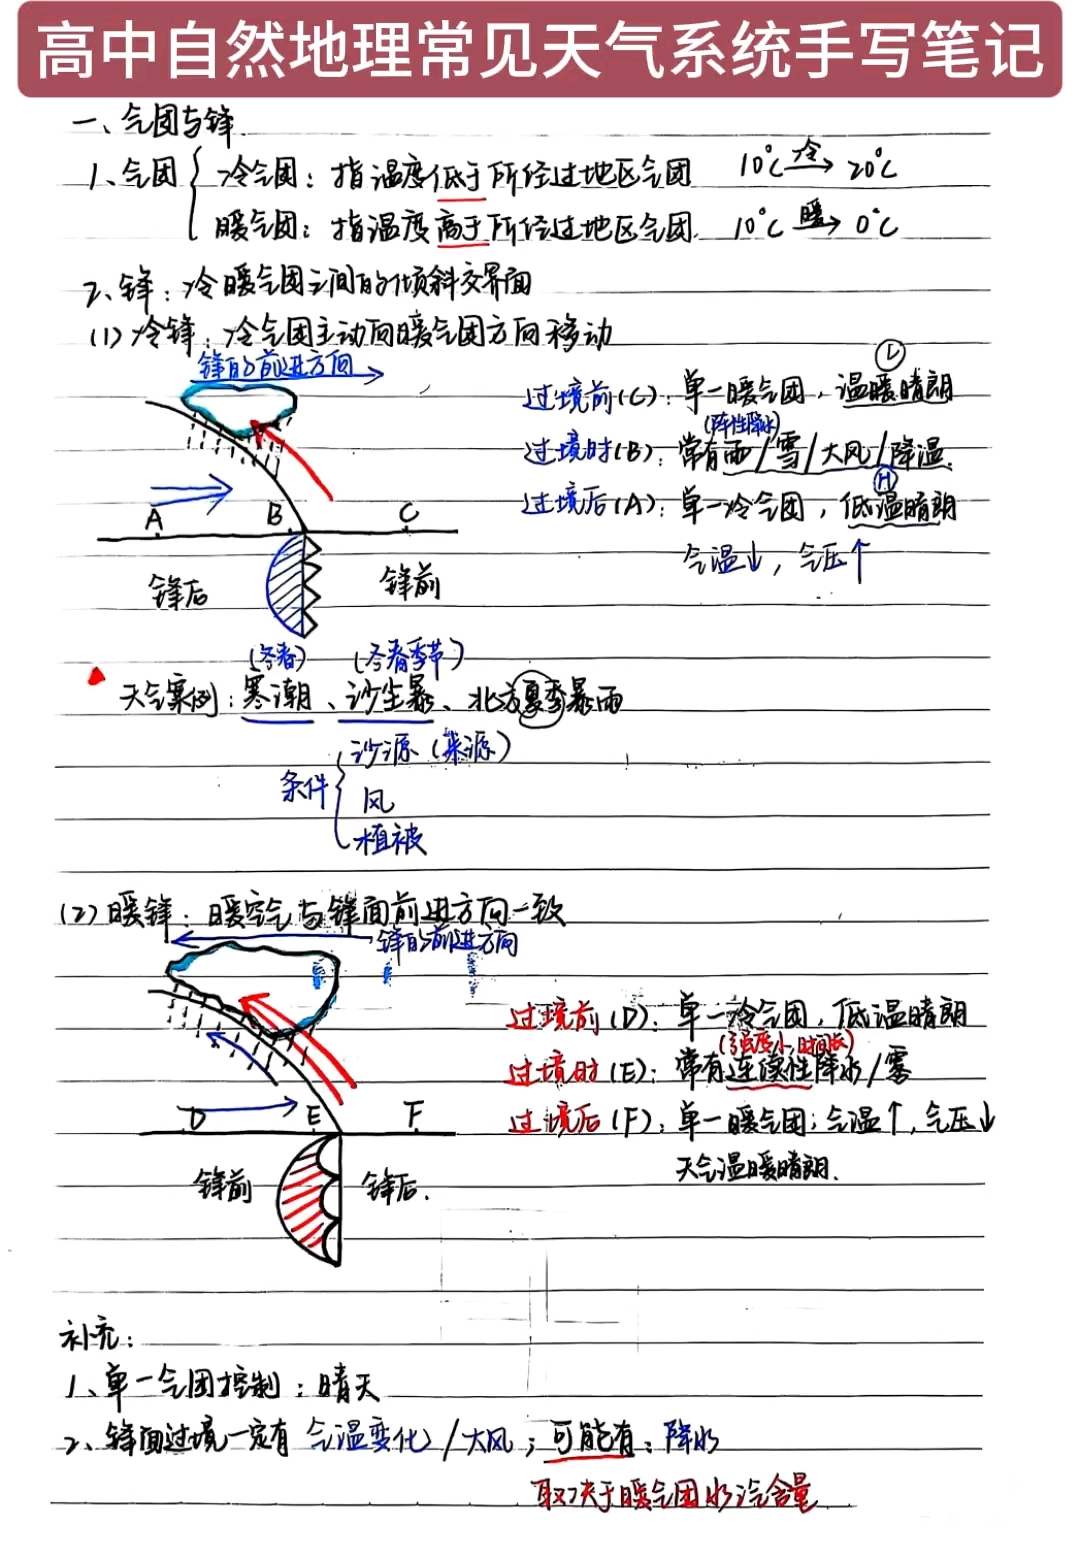 高中自然地理常见天气系统手写笔记
一、气团与锋
1、气团 { 冷气团：指温度低于所经过地区气团 10℃ 冷→ 20℃
暖气团：指温度高于所经过地区气团. 10℃ 暖→ 0℃
2、锋：冷暖气团之间的倾斜交界面
(1) 冷锋：冷气团主动向暖气团方向移动
锋的前进方向
(L)
过境前(C)：单一暖气团，温暖晴朗
(阵性降水)
过境时(B)：常有雨/雪/大风/降温.
(H)
过境后(A)：单一冷气团，低温晴朗
气温↓，气压↑
A B C
锋后 锋前
(冬春) (冬春季节)
天气案例：寒潮、沙尘暴、北方夏季暴雨
条件 { 沙源(来源)
风
植被
(2) 暖锋：暖空气与锋面前进方向一致
锋的前进方向
过境前(D)：单一冷气团，低温晴朗
(强度小，时间长)
过境时(E)：常有连续性降水/雾
过境后(F)：单一暖气团；气温↑，气压↓
天气温暖晴朗.
D E F
锋前 锋后.
补充：
1、单一气团控制：晴天
2、锋面过境一定有 气温变化/大风；可能有：降水
取决于暖气团水汽含量